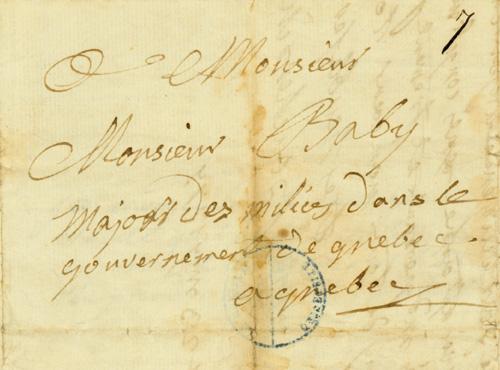 7
A Monsieur
Monsieur Baby
Major des milices dans le
gouvernement de quebec.
a quebec